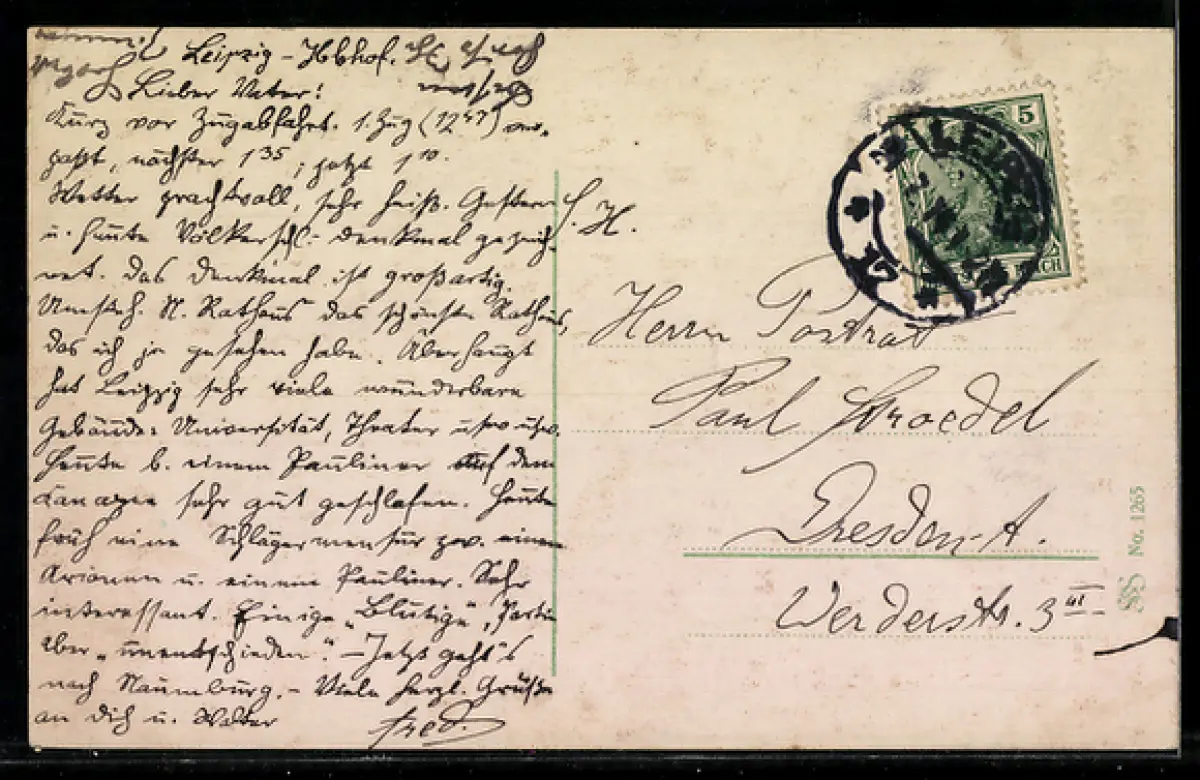 Leipzig-Hbhof.
Lieber Vater!
Kurz vor Zugabfahrt. 1. Zug (12⁴⁷) ver-
paßt, nächster 1³⁵; jetzt 1¹⁰.
Wetter prachtvoll, sehr heiß. Gestern
u. heute Völkerschl.-denkmal gezeich-
net. Das Denkmal ist großartig.
N. Rathaus das schönste Rathaus,
das ich je gesehen habe. Überhaupt
hat Leipzig sehr viele wunderbare
Gebäude: Universität, Theater usw usw.
Heute b. einem Pauliner auf dem
Kanapee sehr gut geschlafen. Heute
früh eine Schlägermensur zw. einem
Arionen u. einem Pauliner. Sehr
interessant. Einige „Blutige“, Partie
aber „unentschieden“. – Jetzt geht's
nach Naumburg. – Viele herzl. Grüße
an dich u. Walter
Fred.
S. H.
Herrn Postrat
Paul Stroedel
Dresden-A.
Werderstr. 3 III
No. 1265
5
LEIPZIG
REICH